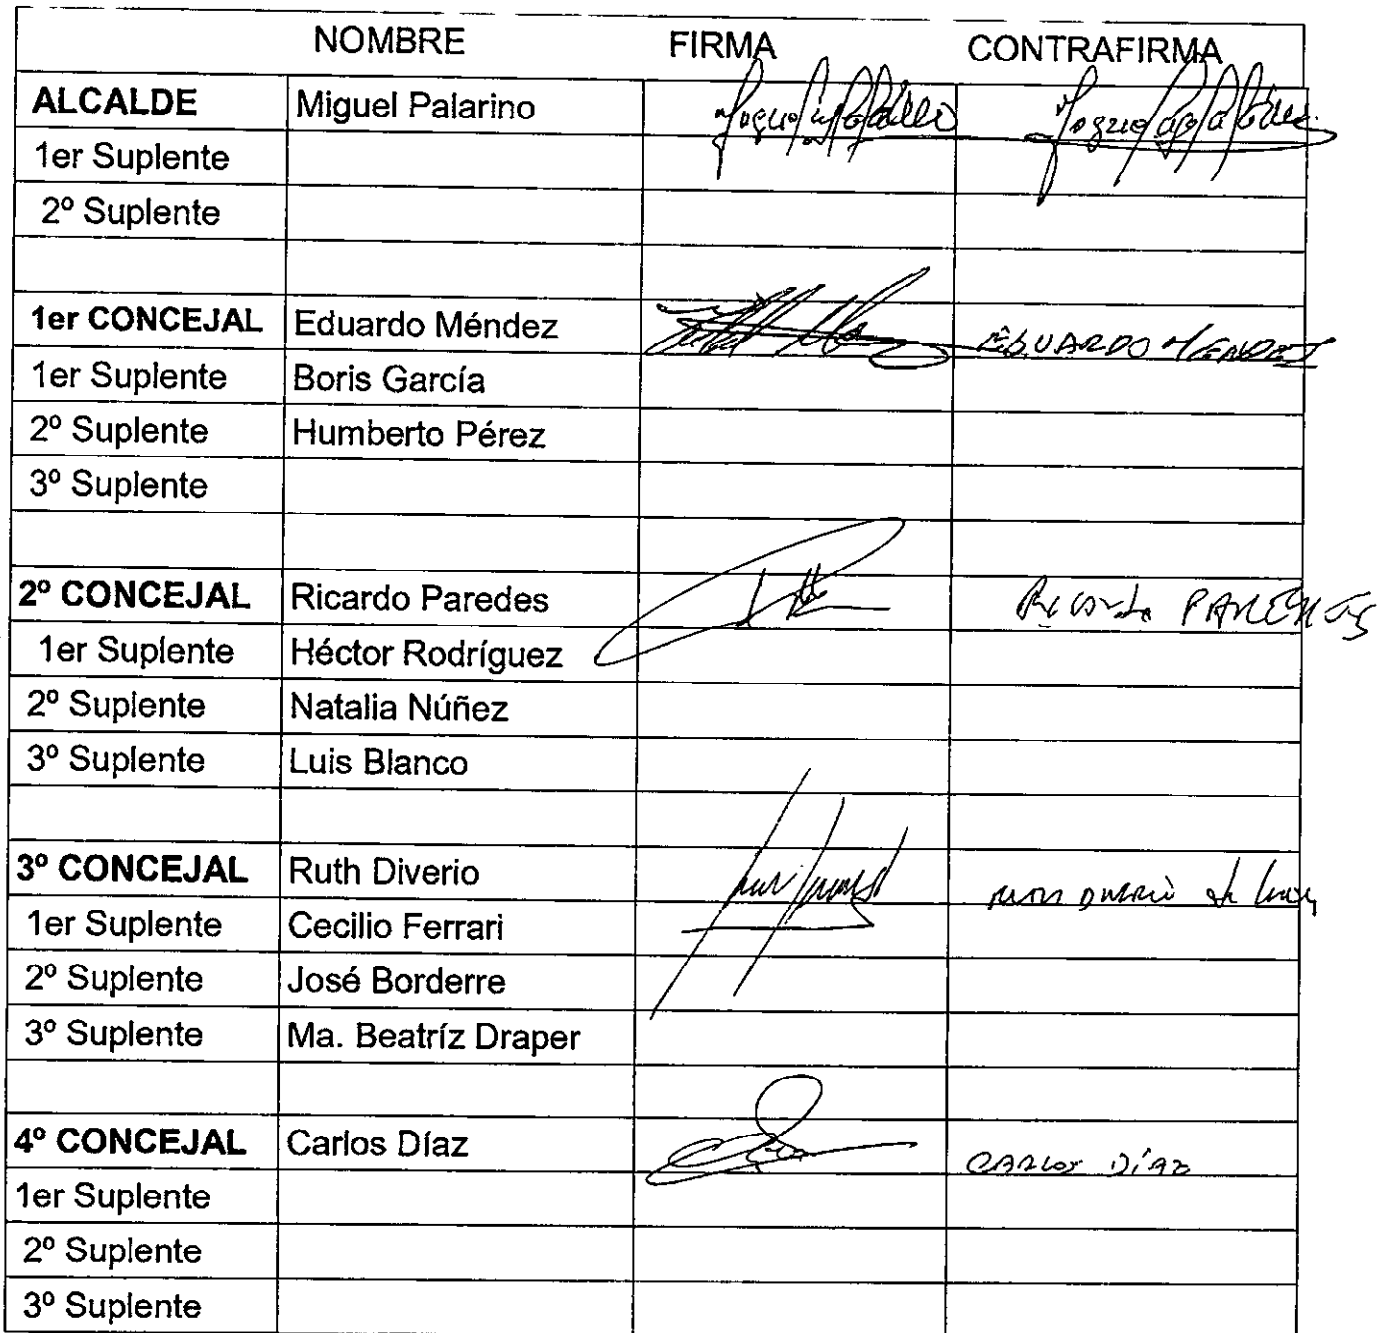 NOMBRE FIRMA CONTRAFIRMA
ALCALDE Miguel Palarino
1er Suplente
2º Suplente
1er CONCEJAL Eduardo Méndez EDUARDO MENDEZ
1er Suplente Boris García
2º Suplente Humberto Pérez
3º Suplente
2º CONCEJAL Ricardo Paredes Ricardo PAREDES
1er Suplente Héctor Rodríguez
2º Suplente Natalia Núñez
3º Suplente Luis Blanco
3º CONCEJAL Ruth Diverio
1er Suplente Cecilio Ferrari
2º Suplente José Borderre
3º Suplente Ma. Beatríz Draper
4º CONCEJAL Carlos Díaz CARLOS DÍAZ
1er Suplente
2º Suplente
3º Suplente